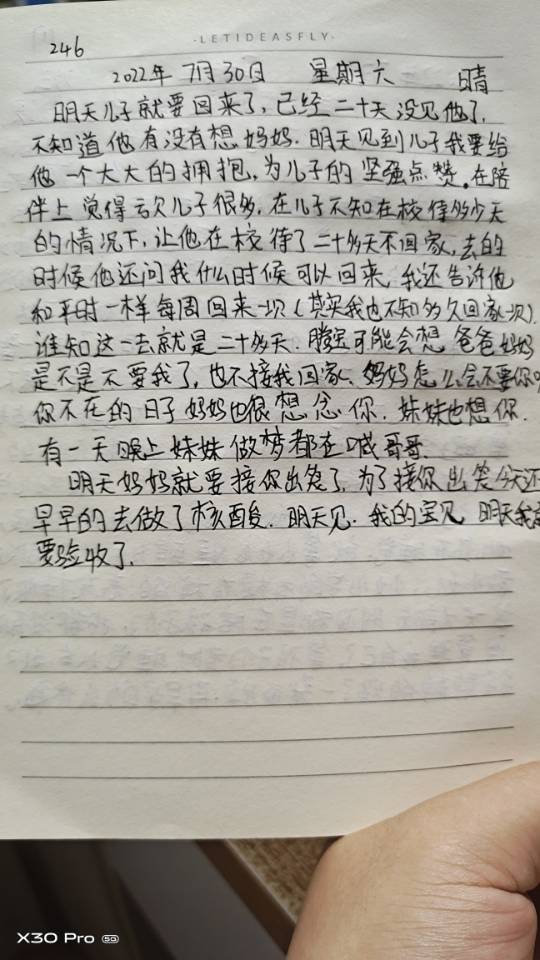 ·LETIDEASFLY·
246
2022年 7月30日 星期六 晴
明天儿子就要回来了,已经二十天没见他了,
不知道他有没有想妈妈.明天见到儿子我要给
他一个大大的拥抱,为儿子的坚强点赞。在陪
伴上觉得亏欠儿子很多,在儿子不知在校待多少天
的情况下,让他在校待了二十多天不回家,去的
时候他还问我什么时候可以回来,我还告诉他
和平时一样每周回来一次(其实我也不知多久回家一次).
谁知这一去就是二十多天.腾宝可能会想爸爸妈妈
是不是不要我了,也不接我回家.妈妈怎么会不要你
你不在的日子妈妈也很想念你.妹妹也想你.
有一天晚上妹妹做梦都在喊哥哥.
明天妈妈就要接你出笼了,为了接你出笼今天还
早早的去做了核酸.明天见.我的宝贝 明天我
要验收了.
X30 Pro 5G